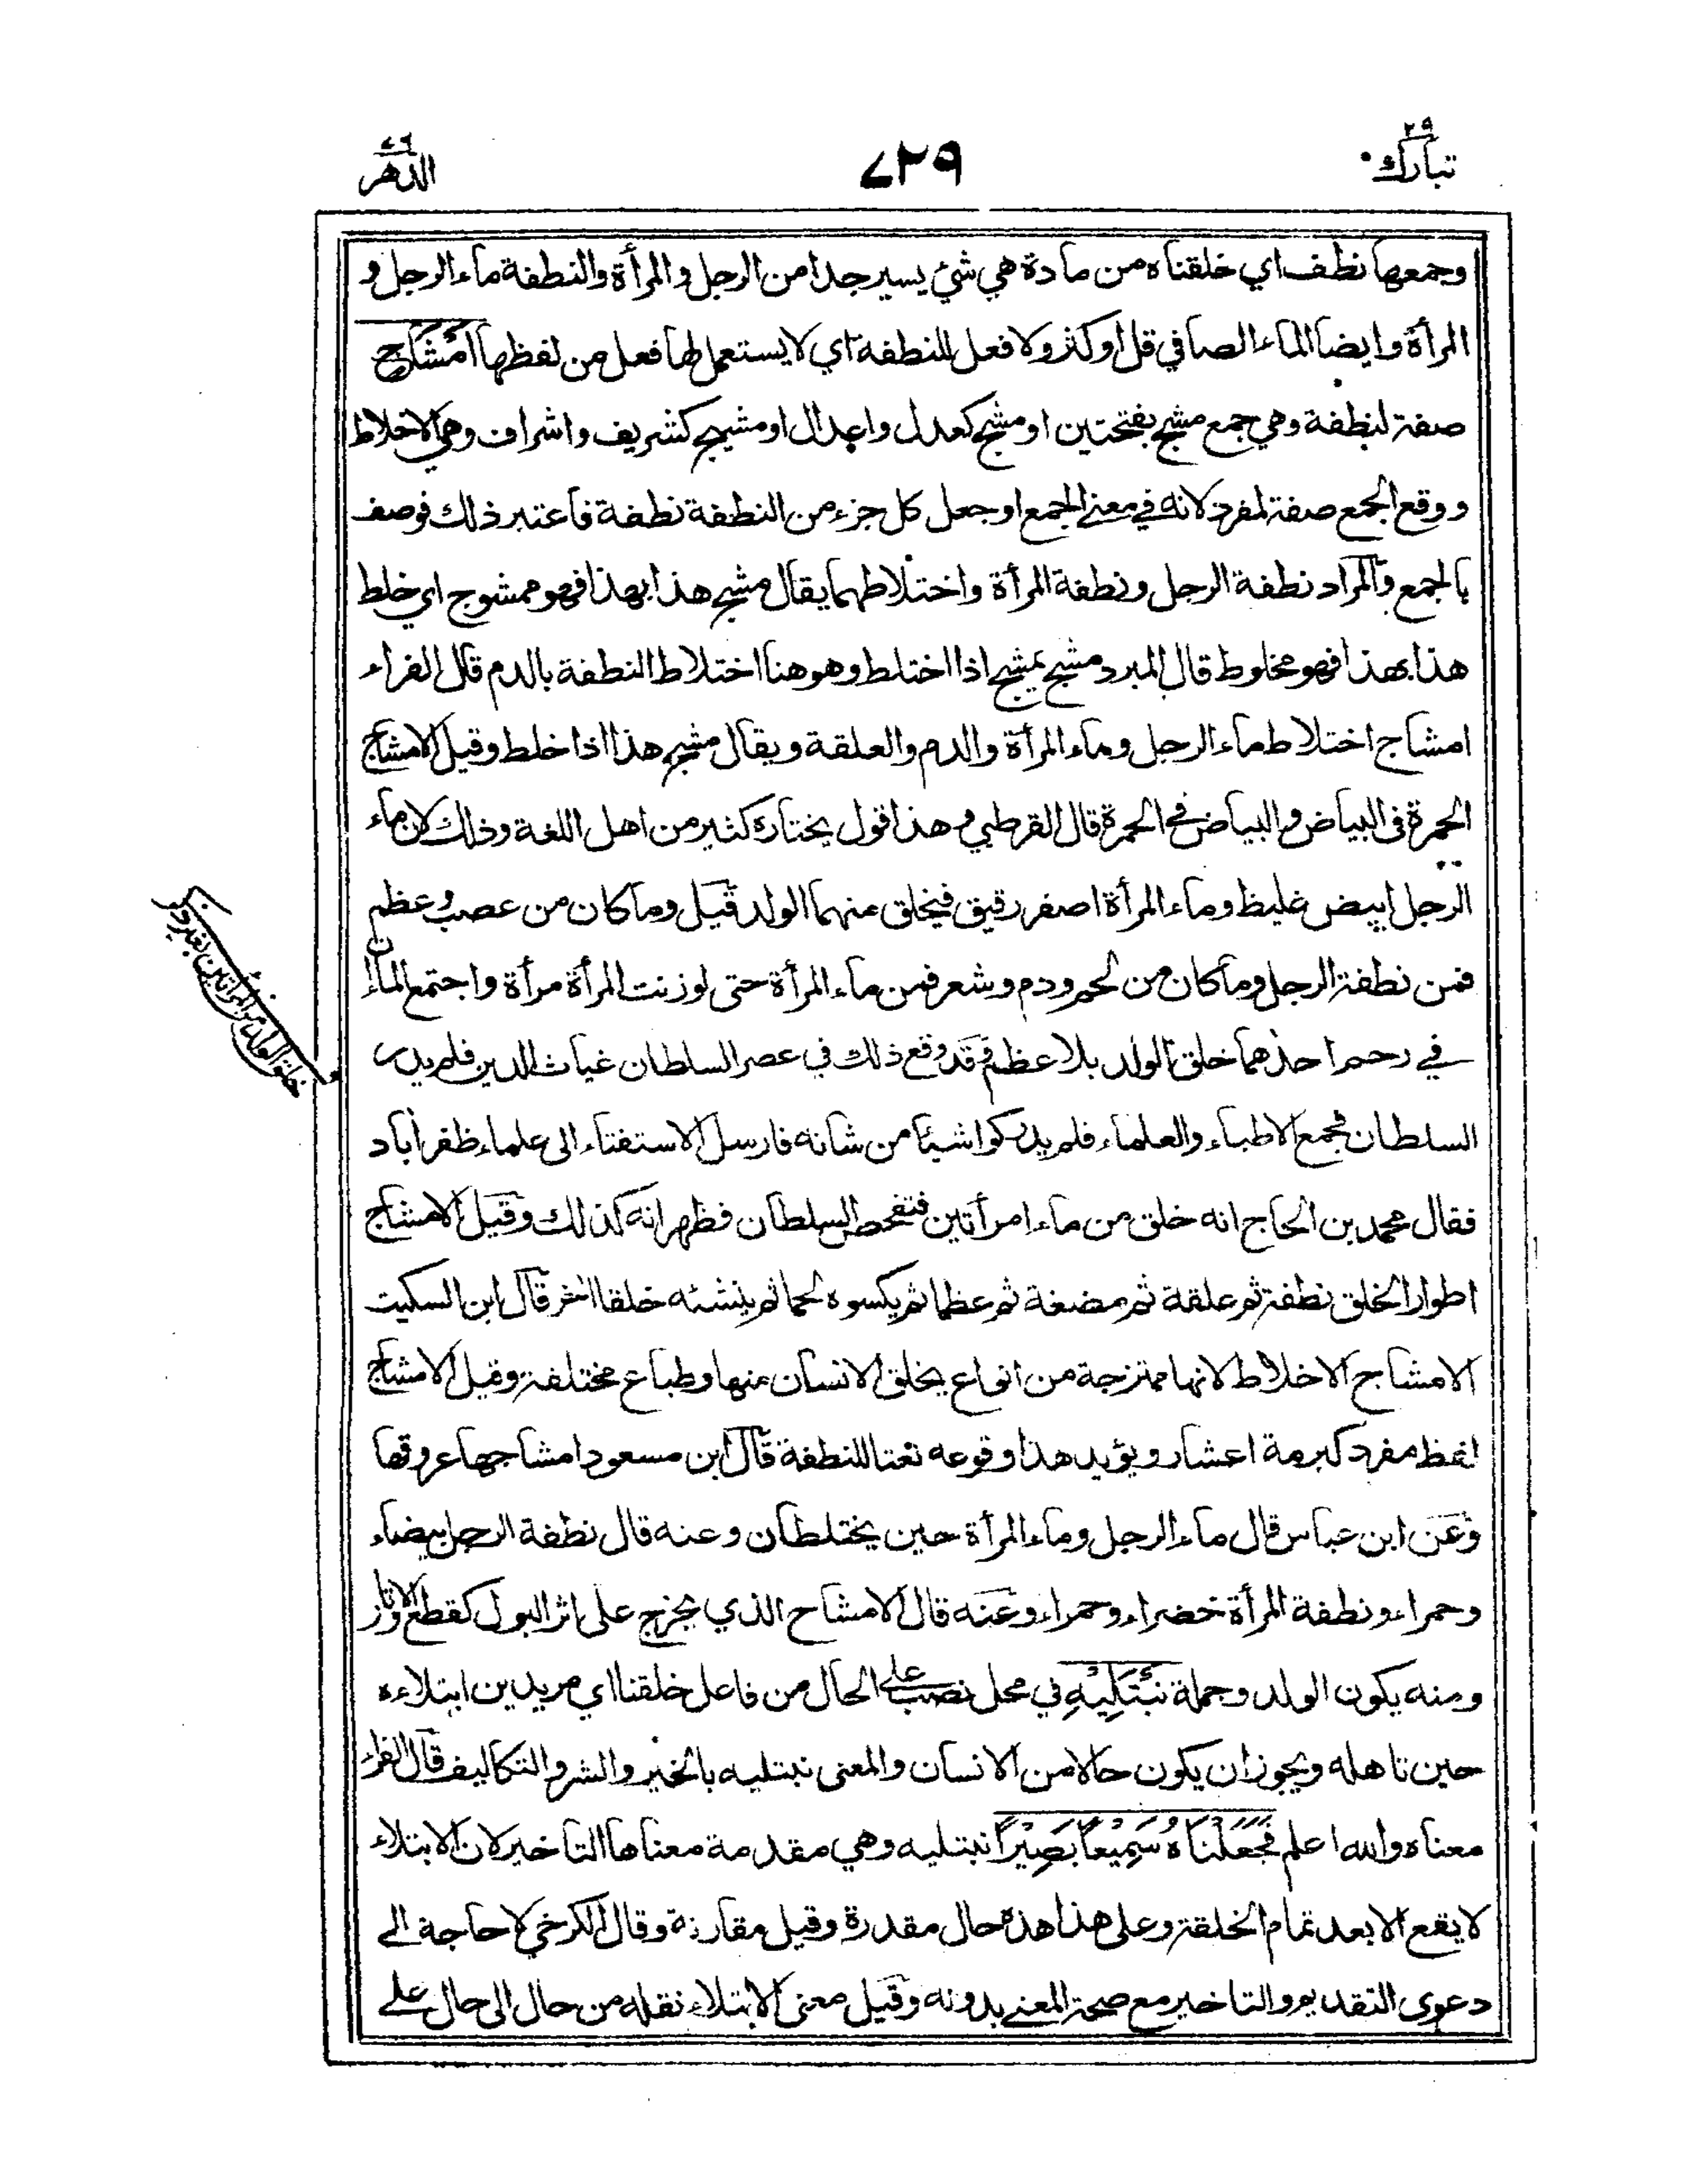 تبارك ٢٩
٧٢٩
الدهر ٧٦
وجمعها نطف اي خلقناه من مادة هي شئ يسير جدا من الرجل والمرأة والنطفة ماء الرجل و
المرأة وايضا الماء الصافي قل او كثر ولا فعل للنطفة اي لا يستعمل لها فعل من لفظها اَمْشَاجٍ
صفة لنطفة وهي جمع مشج بفتحتين او مشج كعدل واعدال او مشيج كشريف واشراف وهي الاخلاط
ووقع الجمع صفة لمفرد لانه في معنى الجمع او جعل كل جزء من النطفة نطفة فاعتبر ذلك فوصف
بالجمع والمراد نطفة الرجل ونطفة المرأة واختلاطهما يقال مشج هذا بهذا فهو ممشوج اي خلط
هذا بهذا فهو مخلوط قال المبرد مشج يمشج اذا اختلط وهو هنا اختلاط النطفة بالدم قال الفراء
امشاج اختلاط ماء الرجل وماء المرأة والدم والعلقة ويقال مشج هذا اذا خلط وقيل الامشاج
الحمرة فى البياض والبياض في الحمرة قال القرطبي وهذا قول يختاره كثير من اهل اللغة وذلك لان ماء
الرجل ابيض غليظ وماء المرأة اصفر رقيق فيخلق منهما الولد قيل وما كان من عصب وعظم
فمن نطفة الرجل وما كان من لحم ودم وشعر فمن ماء المرأة حتى لو زنت المرأة مرأة واجتمع الماآن
في رحم احدهما خلق الولد بلا عظم وقد وقع ذلك في عصر السلطان غياث الدين فلم يدر
السلطان فجمع الاطباء والعلماء فلم يدركوا شيئا من شانه فارسل الاستفتاء الى علماء ظفرآباد
فقال محمد بن الحاج انه خلق من ماء امرأتين فتفحص السلطان فظهر انه كذلك وقيل الامشاج
اطوار الخلق نطفة ثم علقة ثم مضغة ثم عظما ثم يكسوه لحما ثم ينشئه خلقا اخر قال ابن السكيت
الامشاج الاخلاط لانها ممتزجة من انواع يخلق الانسان منها وطباع مختلفة وقيل الامشاج
لفظ مفرد كبرمة اعشار ويؤيد هذا وقوعه نعتا للنطفة قال ابن مسعود امشاجها عروقها
وعن ابن عباس قال ماء الرجل وماء المرأة حين يختلطان وعنه قال نطفة الرجل بيضاء
وحمراء ونطفة المرأة خضراء وحمراء وعنه قال الامشاج الذي يخرج على اثر البول كقطع الاوتار
ومنه يكون الولد وجملة نَبْتَلِيْهِ في محل نصب على الحال من فاعل خلقنا اي مريدين ابتلاءه
حين تاهله ويجوز ان يكون حالا من الانسان والمعنى نبتليه بالخير والشر والتكاليف قال الفراء
معناه والله اعلم فَجَعَلْنَاهُ سَمِيْعًا بَصِيْرًا نبتليه وهي مقدمة معناها التاخير لان الابتلاء
لا يقع الا بعد تمام الخلقة وعلى هذا هذه حال مقدرة وقيل مقارنة وقال الكرخي لا حاجة الى
دعوى التقديم والتاخير مع صحة المعنى بدونه وقيل معنى الابتلاء نقله من حال الى حال على
خلق الولد من المرأتين بغير ذكر